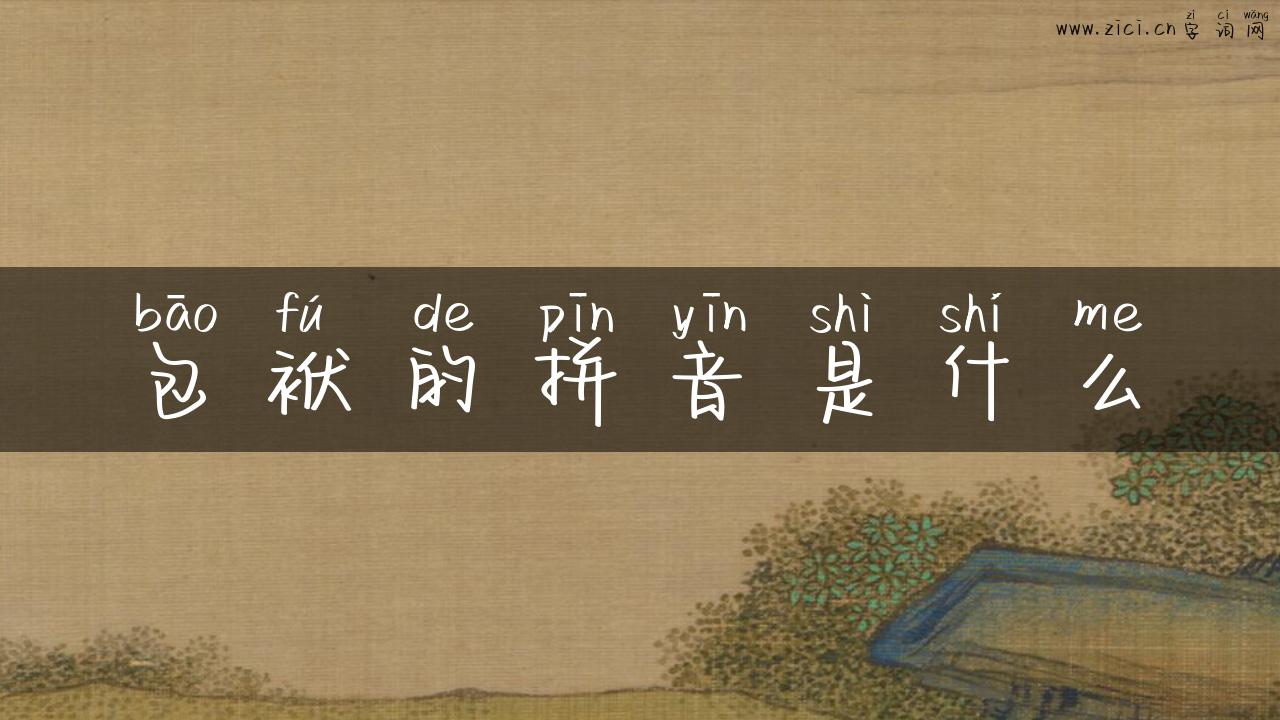 zì cí wǎng
www.zici.cn 字词网
bāo fú de pīn yīn shì shí me
包袱的拼音是什么